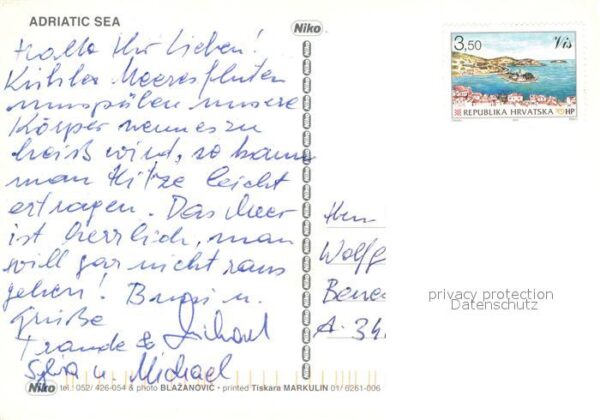 ADRIATIC SEA
Niko
Hallo Ihr Lieben!
Kühle Meeresfluten
umspülen unsere
Körper wenn es zu
heiß wird, so kann
man Hitze leicht
ertragen. Das Meer
ist herrlich, man
will gar nicht raus
gehen! Bussi u.
Grüße
Traude & Michael
Silvia u. Michael
3,50 Vis
REPUBLIKA HRVATSKA HP
Herrn
Wolfg
A-34
privacy protection
Datenschutz
Niko tel.: 052/ 426-054 & photo BLAŽANOVIĆ • printed Tiskara MARKULIN 01/ 6261-006